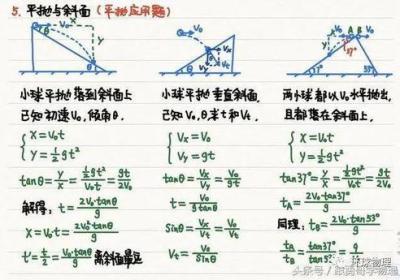 5. 平抛与斜面 (平抛应用题)
V₀ X Y θ θ
V₀ Vx Vy Vt θ
V₀ A B V₀ Y 37° 37° 53°
小球平抛落到斜面上
已知初速V₀,倾角θ.
{ X=V₀t
Y=½gt²
tanθ=Y/X=½gt²/V₀t=gt/2V₀
解得: t=2V₀·tanθ/g
X=V₀t=2V₀²·tanθ/g
t'=t/2=V₀·tanθ/g 离斜面最远
小球平抛垂直斜面,
已知V₀,θ求t和Vt.
{ Vx=V₀
Vy=gt
tanθ=Vx/Vy=V₀/gt
t=V₀/g·tanθ
Sinθ=Vx/Vt=V₀/Vt
Vt=V₀/Sinθ
两小球都以V₀水平抛出,
且都落在斜面上.
{ X=V₀t
Y=½gt²
tan37°=Y/X=½gt²/V₀t=gt/2V₀
tA=2V₀·tan37°/g
同理: tB=2V₀·tan53°/g
tA/tB=tan37°/tan53°=9/16
头条号